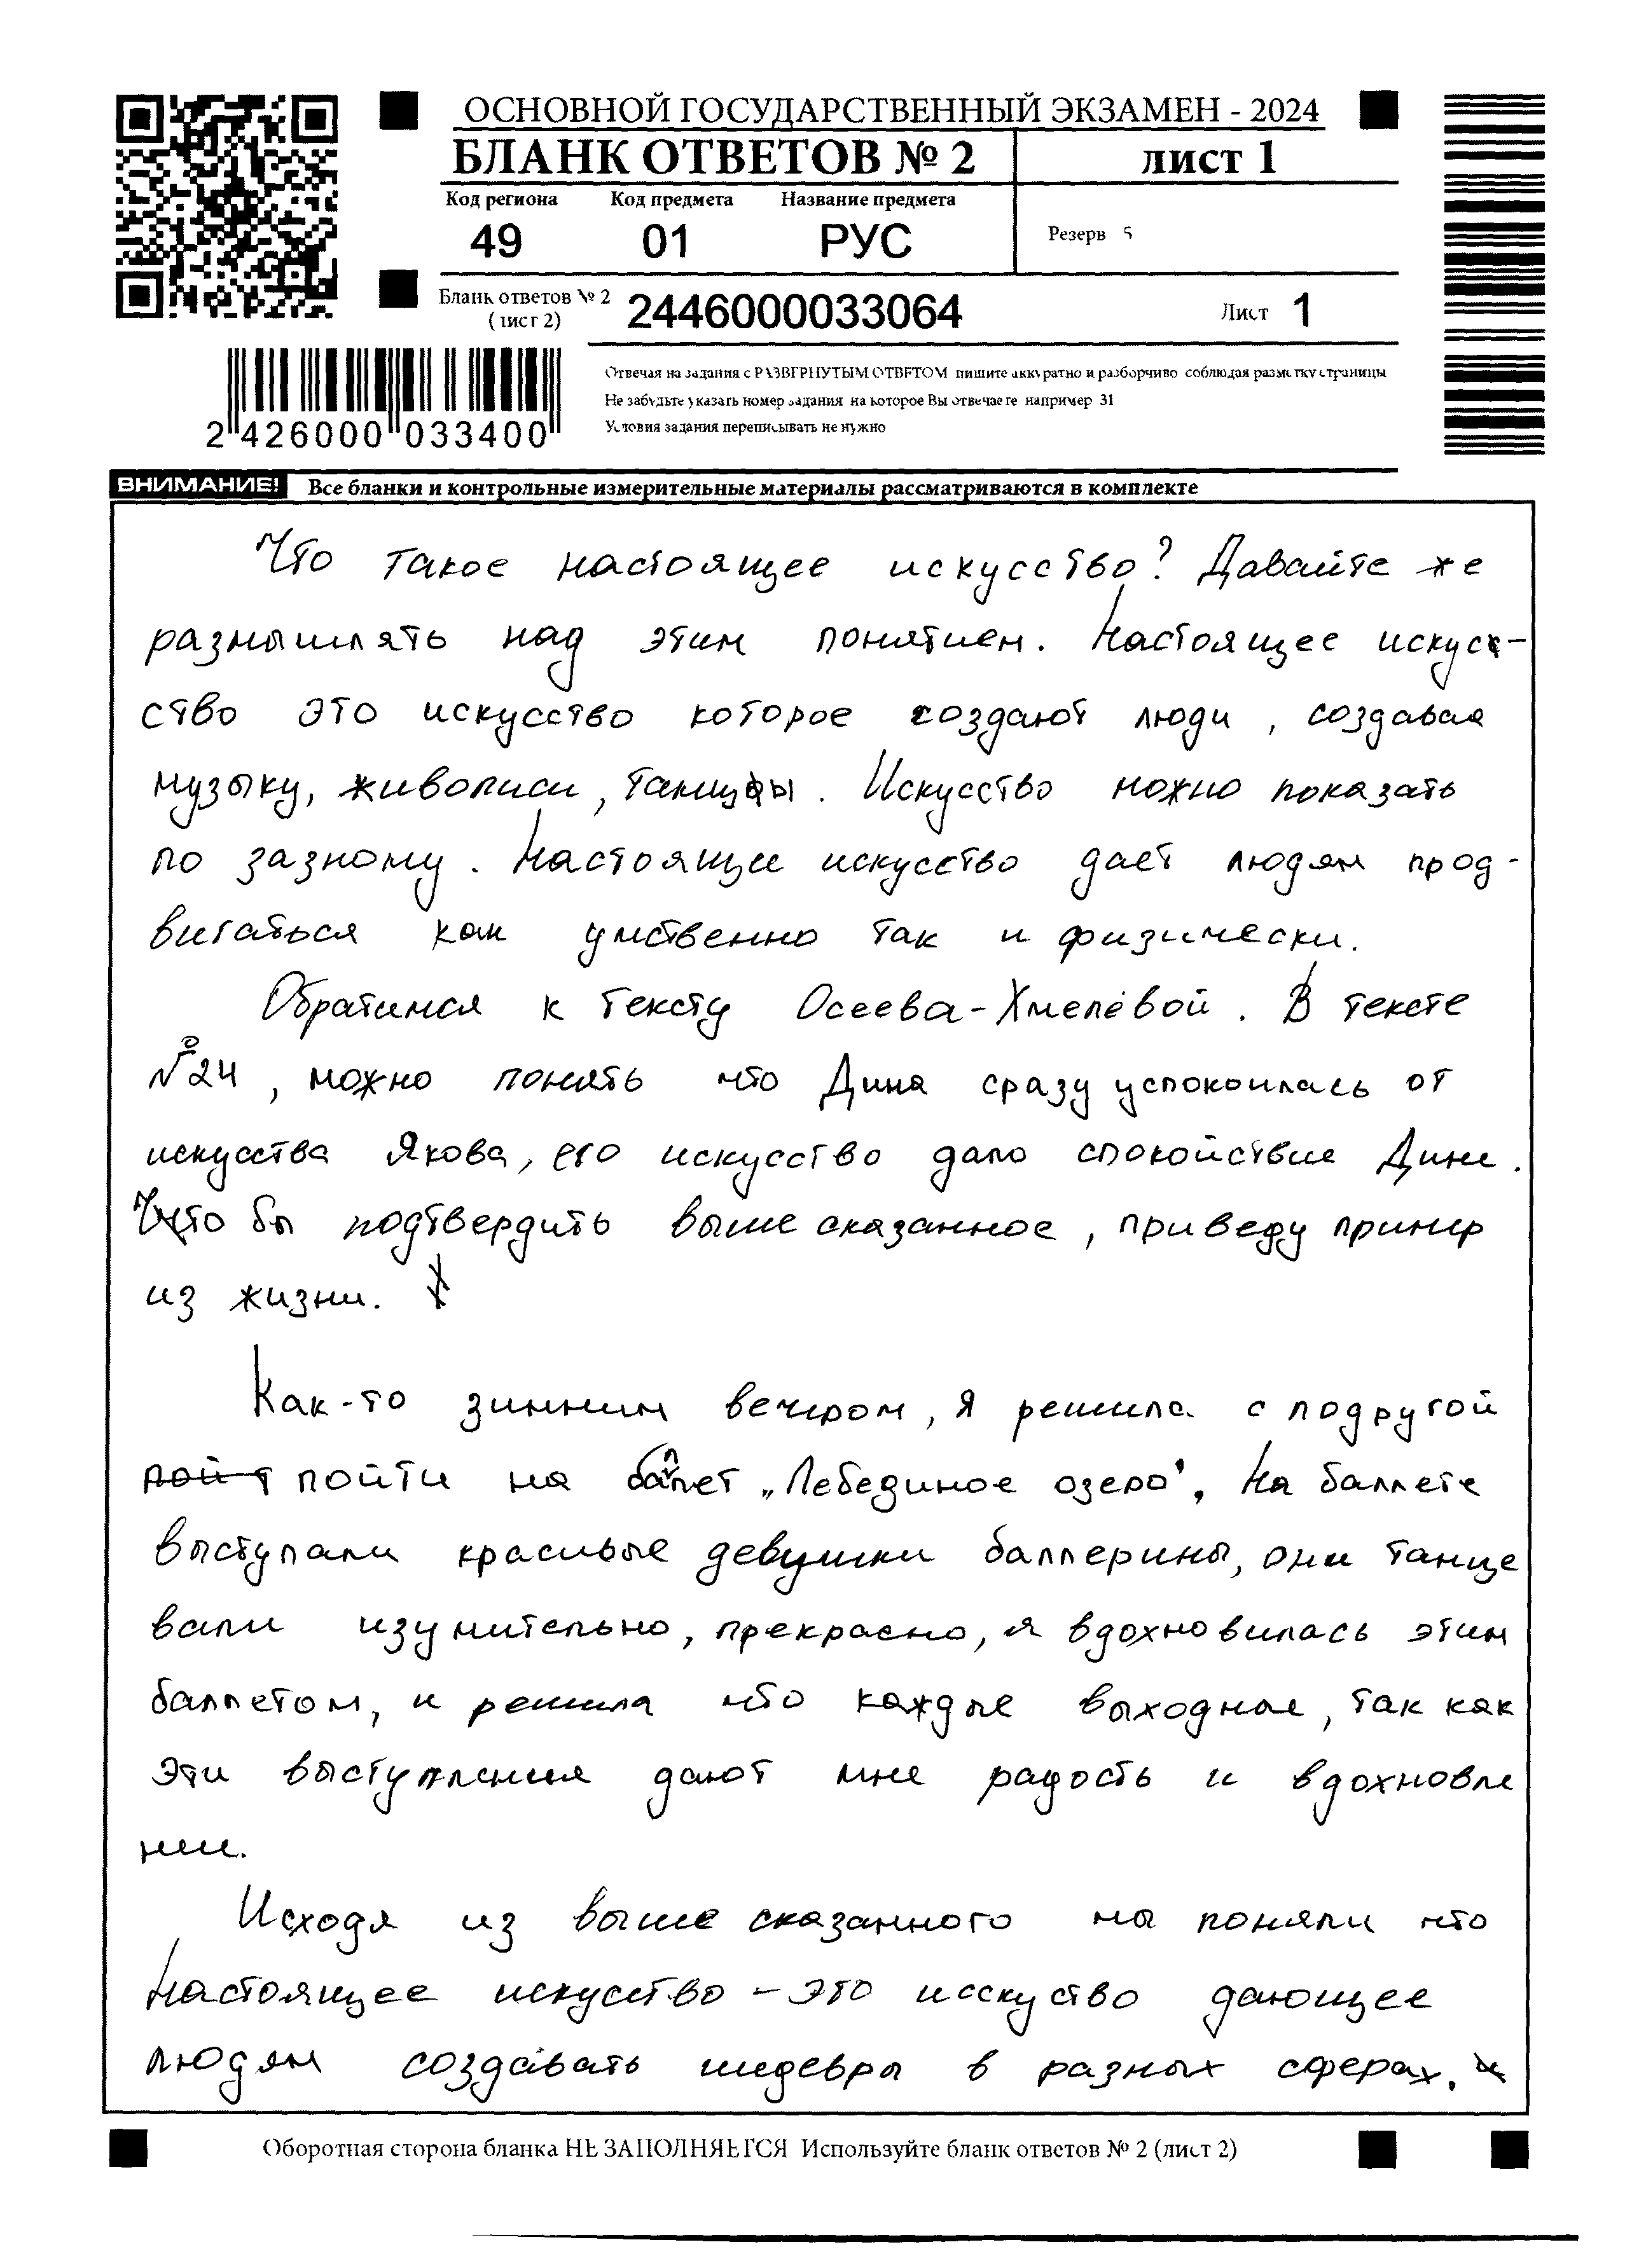 ОСНОВНОЙ ГОСУДАРСТВЕННЫЙ ЭКЗАМЕН - 2024
БЛАНК ОТВЕТОВ № 2
лист 1
Код региона Код предмета Название предмета
49 01 РУС
Резерв 5
Бланк ответов № 2
(лист 2)
2446000033064
Лист 1
2 426000 033400
Отвечая на задания с РАЗВЕРНУТЫМ ОТВЕТОМ пишите аккуратно и разборчиво соблюдая разметку страницы
Не забудьте указать номер задания на которое Вы отвечаете например 31
Условия задания переписывать не нужно
ВНИМАНИЕ! Все бланки и контрольные измерительные материалы рассматриваются в комплекте
Что такое настоящее искусство? Давайте же
размышлять над этим понятием. Настоящее искус-
ство это искусство которое создают люди, создавая
музыку, живописи, танцы. Искусство можно показать
по зазному. Настоящие искусство дает людям прод-
вигаться как умственно так и физически.
Обратимся к тексту Осеева-Хмелёвой. В тексте
№24, можно понять что Дина сразу успокоилась от
искусства Якова, его искусство дало спокойствие Дине.
Что бы подтвердить выше сказанное, приведу пример
из жизни.
Как-то зимним вечером, я решила с подругой
пой т пойти на баллет „Лебединое озеро". На баллете
выступали красивые девушки баллерины, они танце
вали изумительно, прекрасно, я вдохновилась этим
баллетом, и решила что каждые выходные, так как
эти выступления дают мне радость и вдохновле
нии.
Исходя из выше сказанного мы поняли что
настоящее искусство - это исскуство дающее
людям создавать шедевры в разных сферах.
Оборотная сторона бланка НЕ ЗАПОЛНЯЕТСЯ Используйте бланк ответов № 2 (лист 2)